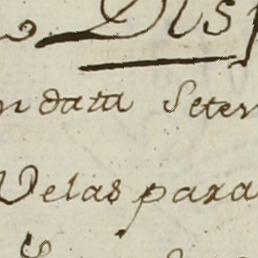 Dis
n data Seter
Velas para